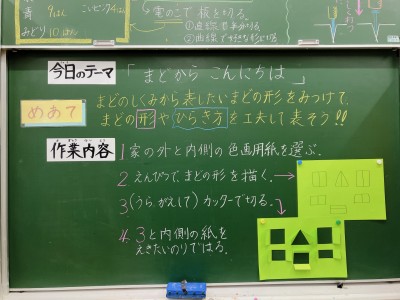 青 9はん
みどり 10はん
電のこで板を切る。
今日のテーマ 「まどから こんにちは 」
めあて
まどのしくみから表したいまどの形をみつけて、
まどの形やひらき方を工夫して表そう!!
作業内容
1 家の外と内側の色画用紙を選ぶ。
2. えんぴつで、まどの形を描く。
3. (うらがえして)カッターで切る。
4. 3と内側の紙を
えきたいのりではる。